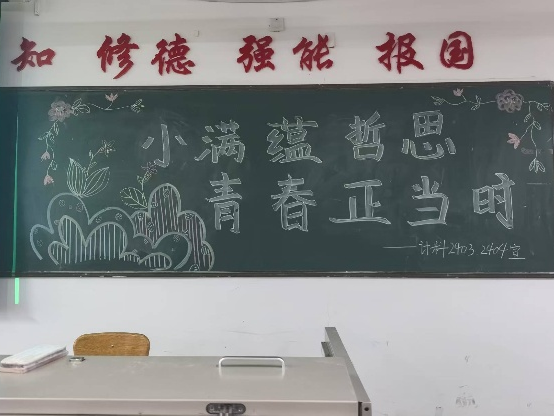 知 修德 强能 报国
小满蕴哲思
青春正当时
——计科2403 2404宣